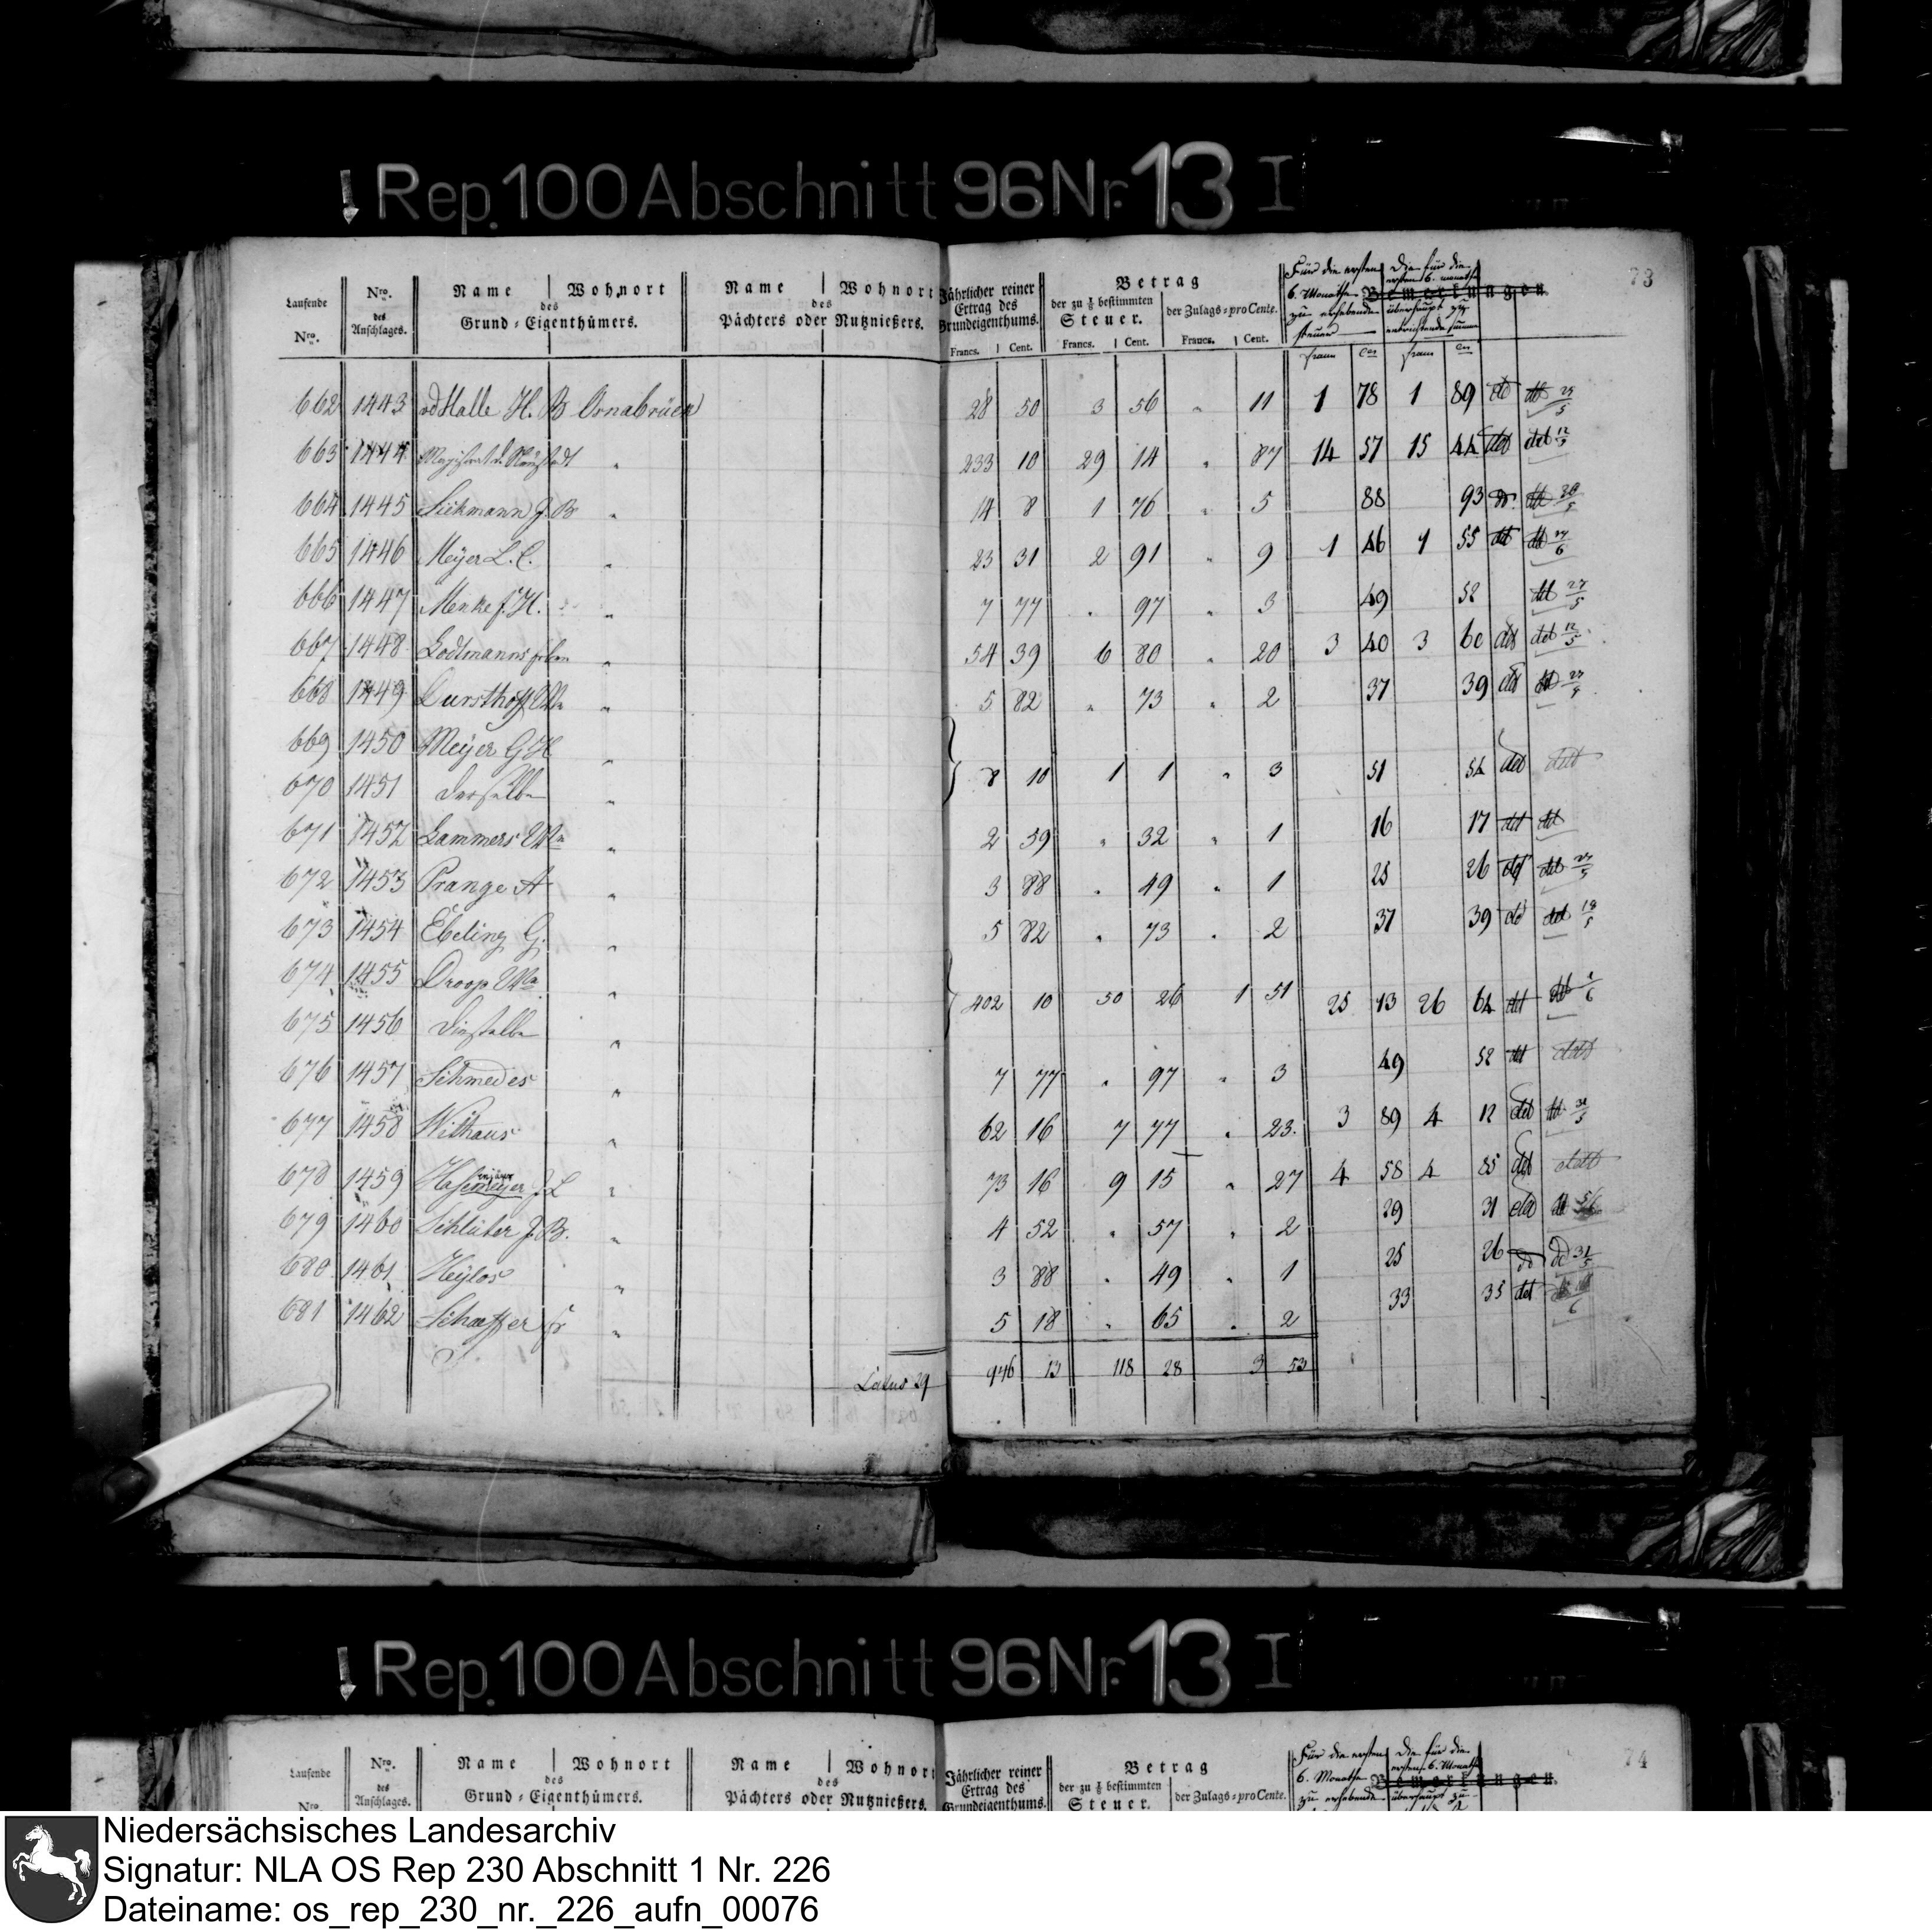 Rep. 100 Abschnitt 96 Nr. 13 I
73
Laufende Nro. | Nro. des Anschlages. | Name | Wohnort des Grund-Eigenthümers. | Name | Wohnort des Pächters oder Nutznießers. | Jährlicher reiner Ertrag des Grundeigenthums. Francs. | Cent. | Betrag der zu ⅛ bestimmten Steuer. Francs. | Cent. | der Zulags-pro Cente. Francs. | Cent. | Für die ersten 6. Monathe zu erhebende Steuer | Die für die ersten 6. monathe überhaupt zu entrichtende summe | Bemerkungen.
662 1443 vd Halle H. B Osnabrück 28 50 3 56 " 11 1 78 1 89 dt dt 25/5
663 1444 Magistrat d. Neustadt " 233 10 29 14 " 87 14 57 15 44 det det 12/5
664 1445 J. B " 14 8 1 76 " 5 88 93
665 1446 Meÿer L. C. " 23 31 2 91 " 9 1 46 1 55 dt
666 1447 Menke J. H. " 7 77 " 97 " 3 49 52 dt 27/5
667 1448 Lodtmanns Erben " 54 39 6 80 " 20 3 40 3 60 det det 12/5
668 1449 Dursthoff Wwe " 5 82 " 73 " 2 37 39 det
669 1450 Meÿer G H "
670 1451 derselbe " 8 10 1 1 " 3 51 54 det dett
671 1452 Lammers Wwe " 2 59 " 32 " 1 16 17 dt dt
672 1453 Prange A " 3 88 " 49 " 1 25 26 det det
673 1454 Ebeling G. " 5 82 " 73 " 2 37 39 det det 18/5
674 1455 Droop Wwe "
675 1456 Dieselbe " 402 10 50 26 1 51 25 13 26 64 dt
676 1457 Schmedes " 7 77 " 97 " 3 49 52 dt dett
677 1458 Withaus " 62 16 7 77 " 23. 3 89 4 12 det
678 1459 Hasemeyer J L " 73 16 9 15 " 27 4 58 4 85 det dett
679 1460 Schlüter J. B. " 4 52 " 57 " 2 29 31 det
680 1461 Heÿlos " 3 88 " 49 " 1 25 26 31/5
681 1462 Schaeffer " 5 18 " 65 " 2 33 35 det
Latus 29 946 13 118 28 3 53
Rep. 100 Abschnitt 96 Nr. 13 I
74
Laufende Nro. | Nro. des Anschlages. | Name | Wohnort des Grund-Eigenthümers. | Name | Wohnort des Pächters oder Nutznießers. | Jährlicher reiner Ertrag des Grundeigenthums. | Betrag der zu ⅛ bestimmten Steuer. | der Zulags-pro Cente. | Für die ersten 6. Monathe zu erhebende | Die für die ersten 6. Monathe überhaupt zu | Bemerkungen.
Niedersächsisches Landesarchiv
Signatur: NLA OS Rep 230 Abschnitt 1 Nr. 226
Dateiname: os_rep_230_nr._226_aufn_00076